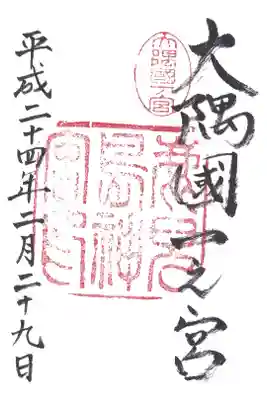 大隅國一之宮
大隅國一ノ宮
平成二十四年二月二十九日